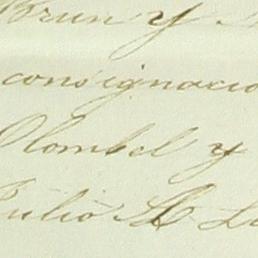 Brun y
consignacio
Olombel y
Julio A